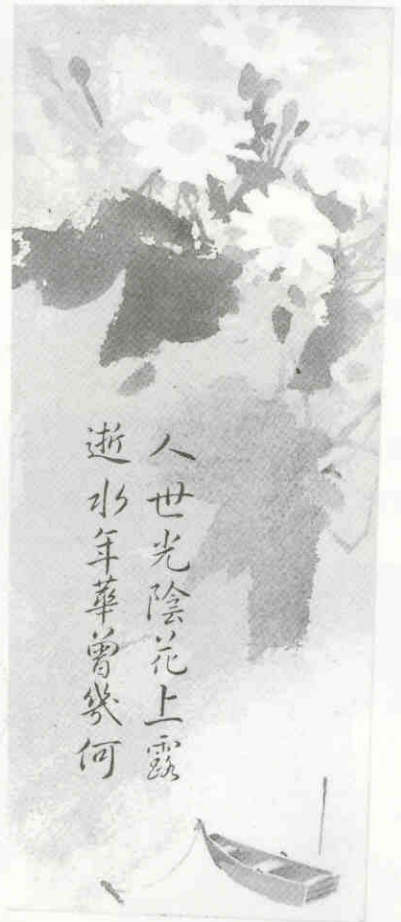 人世光陰花上露
逝水年華曾幾何